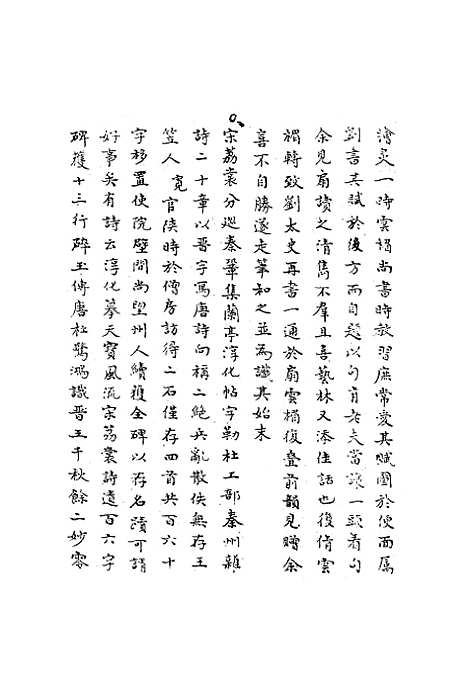 滄炙一時雲楣尚書時敎習庶常愛其賦圖於便面屬
劉書其賦於後方而自題以句有老夫當讓一頭着句
余見扇讀之清雋不羣且喜藝林又添佳話也後倩雲
楣轉致劉太史再書一通於扇雲楣復叠前韻見贈余
喜不自勝遂走筆和之並為識其始末
宋荔裳分廵秦鞏集蘭亭淳化帖字勒杜工部秦州雜
詩二十章以晋字寫唐詩向稱二絶兵亂散佚無存王
笠人寛官陝時於僧房訪得二石僅存四首共百六十
字移置使院壁間尚望州人續獲全碑以存名蹟可謂
好事矣有詩云淳化摹天寶風流宋荔裳詩遺百六字
碑獲十三行碎玉傳唐杜驚鴻識晋王千秋餘二妙零